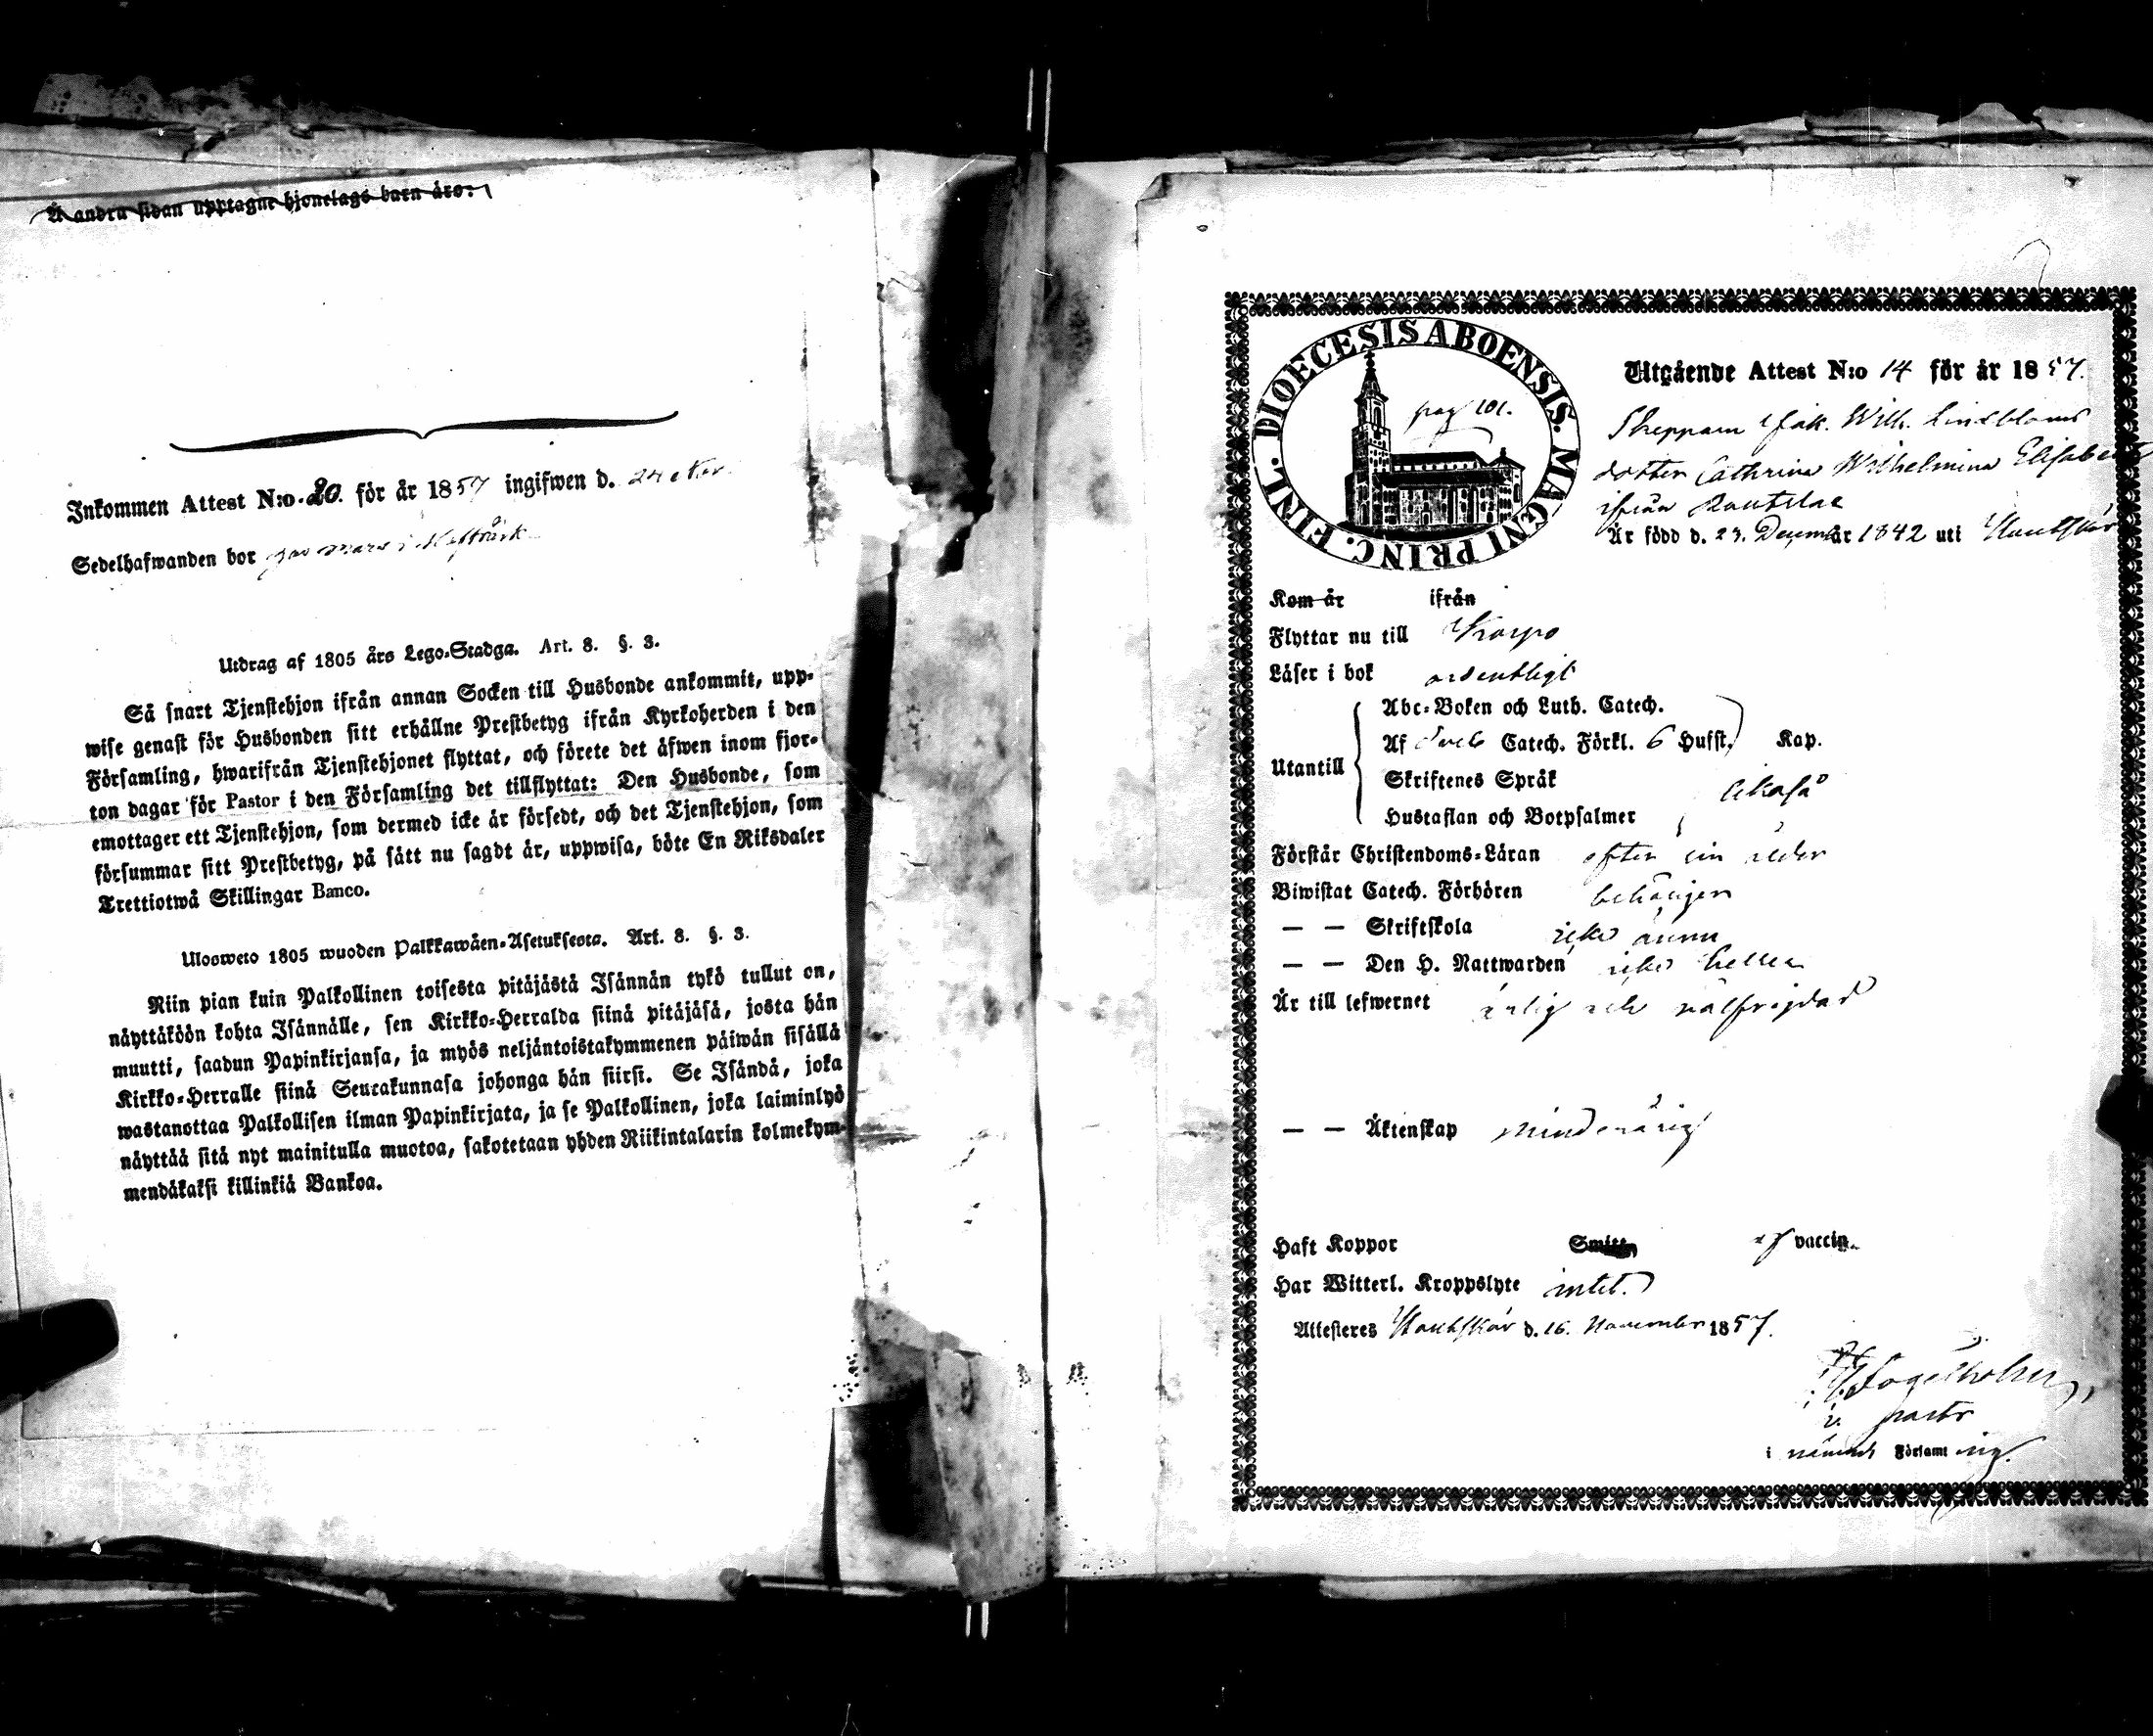 Å andra sidan upptagne hjonelags barn äro:
Inkommen Attest N:o 20. för år 1857 ingifwen d. 24 Nov.
Sedelhafwanden bor
Utdrag af 1805 års Lego-Stadga. Art. 8. §. 3.
Så snart Tjenstehjon ifrån annan Socken till Husbonde ankommit, upp-
wise genast för Husbonden sitt erhållne Prestbetyg ifrån Kyrkoherden i den
Församling, hwarifrån Tjenstehjonet flyttat, och förete det äfwen inom fjor-
ton dagar för Pastor i den Församling det tillflyttat: Den Husbonde, som
emottager ett Tjenstehjon, som dermed icke är försedt, och det Tjenstehjon, som
försummar sitt Prestbetyg, på sätt nu sagdt är, uppwisa, böte En Riksdaler
Trettiotwå Skillingar Banco.
Ulosweto 1805 wuoden Palkkawäen-Asetuksesta. Art. 8. §. 3.
Niin pian kuin Palkollinen toisesta pitäjästä Isännän tykö tullut on,
näyttäköön kohta Isännälle, sen Kirkko-Herralda siinä pitäjäsä, josta hän
muutti, saadun Papinkirjansa, ja myös neljäntoistakymmenen päiwän sisällä
Kirkko-Herralle siinä Seurakunnasa johonga hän siirsi. Se Isändä, joka
wastanottaa Palkollisen ilman Papinkirjata, ja se Palkollinen, joka laiminlyö
näyttää sitä nyt mainitulla muotoa, sakotetaan yhden Riikintalarin kolmekym-
mendäkaksi killinkiä Bankoa.
DIOECESIS ABOENSIS. MAGNI PRINC. FINL.
pag 101.
Utgående Attest N:o 14 för år 1857.
Skepparn Isak. Wilh. Lindbloms
dotter Cathrina Wilhelmina Elisabeth
ifrån
Är född d. 23. Decemb år 1842 uti Houtskär
Kom år ifrån
Flyttar nu till Korpo
Läser i bok ordentligt
Utantill
Abc-Boken och Luth. Catech.
Af Sveb Catech. Förkl. 6 Hufst. Kap.
Skriftenes Språk
Hustaflan och Botpsalmer
likaså
Förstår Christendoms-Läran efter sin ålder
Biwistat Catech. Förhören behörigen
— — Skriftskola icke ännu
— — Den H. Nattwarden icke heller
Är till lefwernet ärlig och välfrejdad
— — Äktenskap minderårig
Haft Koppor Smitt af vaccin.
Har Witterl. Kroppslyte intet.
Attesteres Houtskär d. 16. November 1857.
Fogelholm
v. pastor
i nämnde Församling.